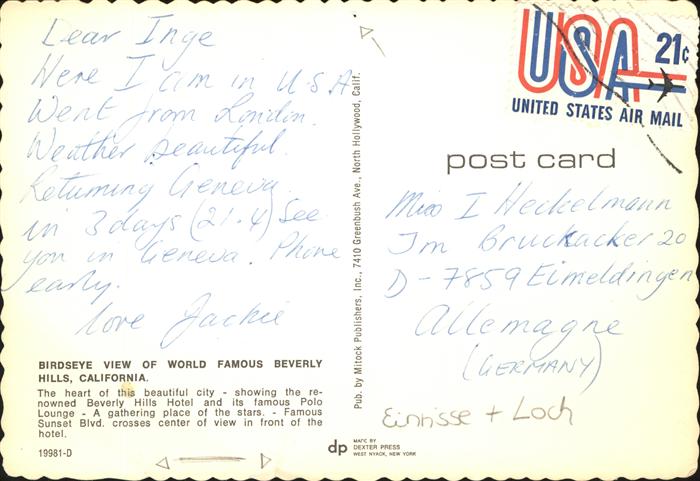 Dear Inge
Here I am in U.S.A
Went from London.
Weather beautiful.
Returning Geneva
in 3 days (21.4) See
you in Geneva. Phone
early.
love Jackie
BIRDSEYE VIEW OF WORLD FAMOUS BEVERLY
HILLS, CALIFORNIA.
The heart of this beautiful city - showing the re-
nowned Beverly Hills Hotel and its famous Polo
Lounge - A gathering place of the stars. - Famous
Sunset Blvd. crosses center of view in front of the
hotel.
19981-D
Pub. by Mitock Publishers, Inc., 7410 Greenbush Ave., North Hollywood, Calif.
USA 21c
UNITED STATES AIR MAIL
post card
Miss I Heckelmann
Im Bruckacker 20
D-7859 Eimeldingen
Allemagne
(GERMANY)
Einrisse + Loch
dp MADE BY
DEXTER PRESS
WEST NYACK, NEW YORK